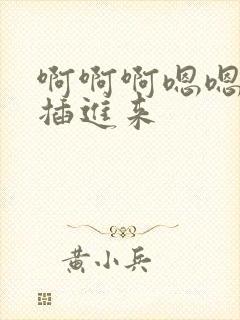 啊啊啊嗯嗯
插進来
黄小兵